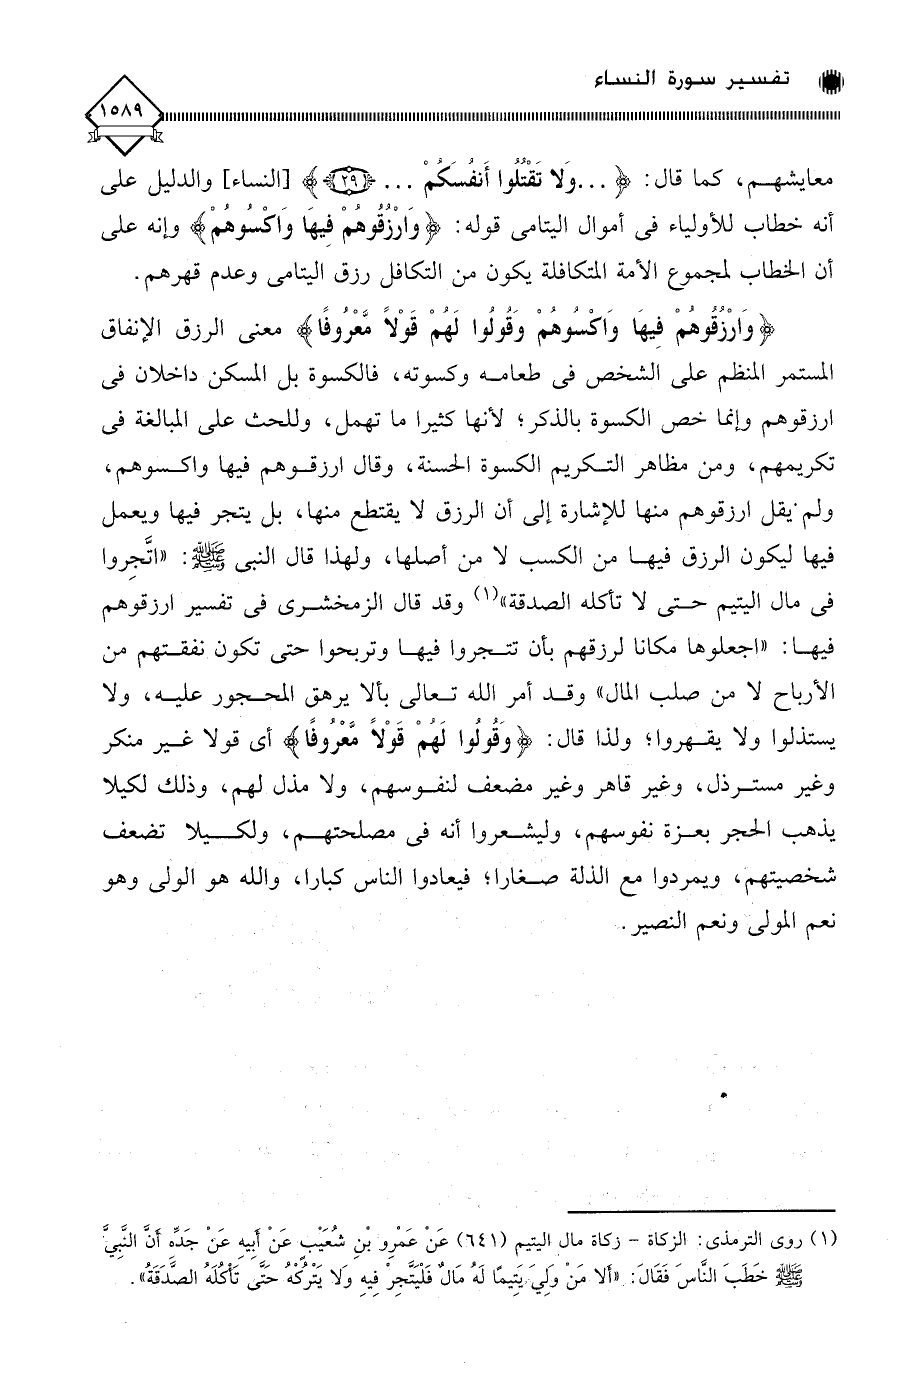 تفسير سورة النساء
١٥٨٩
معايشهم، كما قال: ﴿ ...وَلا تَقْتُلُوا أَنفُسَكُمْ ... ﴿٢٩﴾ ﴾ [النساء] والدليل على
أنه خطاب للأولياء فى أموال اليتامى قوله: ﴿ وَارْزُقُوهُمْ فِيهَا وَاكْسُوهُمْ ﴾ وإنه على
أن الخطاب لمجموع الأمة المتكافلة يكون من التكافل رزق اليتامى وعدم قهرهم.
﴿ وَارْزُقُوهُمْ فِيهَا وَاكْسُوهُمْ وَقُولُوا لَهُمْ قَوْلاً مَّعْرُوفًا ﴾ معنى الرزق الإنفاق
المستمر المنظم على الشخص فى طعامه وكسوته، فالكسوة بل المسكن داخلان فى
ارزقوهم وإنما خص الكسوة بالذكر؛ لأنها كثيرا ما تهمل، وللحث على المبالغة فى
تكريمهم، ومن مظاهر التكريم الكسوة الحسنة، وقال ارزقوهم فيها واكسوهم،
ولم يقل ارزقوهم منها للإشارة إلى أن الرزق لا يقتطع منها، بل يتجر فيها ويعمل
فيها ليكون الرزق فيها من الكسب لا من أصلها، ولهذا قال النبى ﷺ: «اتَّجِروا
فى مال اليتيم حتى لا تأكله الصدقة»(١) وقد قال الزمخشرى فى تفسير ارزقوهم
فيها: «اجعلوها مكانا لرزقهم بأن تتجروا فيها وتربحوا حتى تكون نفقتهم من
الأرباح لا من صلب المال» وقد أمر الله تعالى بألا يرهق المحجور عليه، ولا
يستذلوا ولا يقهروا؛ ولذا قال: ﴿ وَقُولُوا لَهُمْ قَوْلاً مَّعْرُوفًا ﴾ أى قولا غير منكر
وغير مسترذل، وغير قاهر وغير مضعف لنفوسهم، ولا مذل لهم، وذلك لكيلا
يذهب الحجر بعزة نفوسهم، وليشعروا أنه فى مصلحتهم، ولكيلا تضعف
شخصيتهم، ويمردوا مع الذلة صغارا؛ فيعادوا الناس كبارا، والله هو الولى وهو
نعم المولى ونعم النصير.
(١) روى الترمذى: الزكاة - زكاة مال اليتيم (٦٤١) عَنْ عَمْرِو بْنِ شُعَيْبٍ عَنْ أَبِيهِ عَنْ جَدِّهِ أَنَّ النَّبِيَّ
ﷺ خَطَبَ النَّاسَ فَقَالَ: «أَلا مَنْ وَلِيَ يَتِيمًا لَهُ مَالٌ فَلْيَتَّجِرْ فِيهِ وَلا يَتْرُكْهُ حَتَّى تَأْكُلَهُ الصَّدَقَةُ».